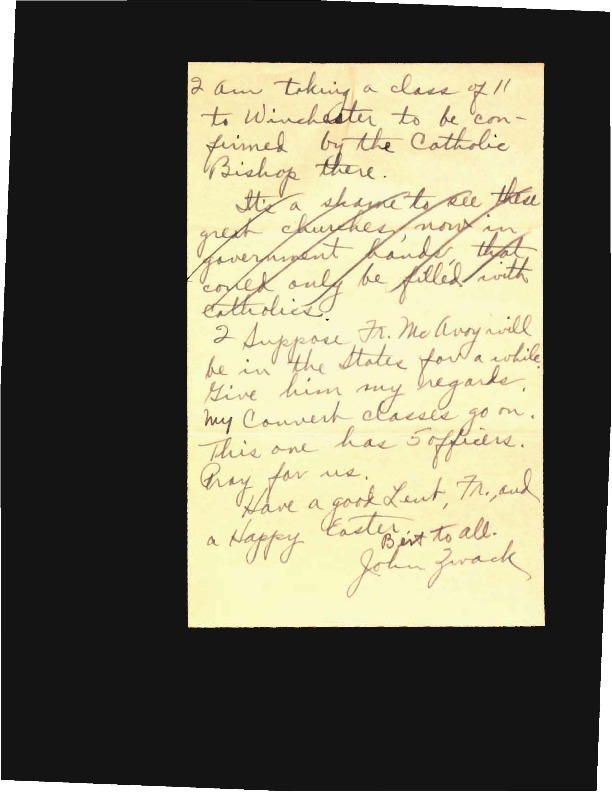 I am taking a class of 11
to Winchester to be con-
firmed by the Catholic
Bishop there.
It's a shame to see these
great churches, now in
government hands, that
could only be filled with
Catholics.
I Suppose Fr. McAvoy will
be in the States for a while.
Give him my regards.
My Convert classes go on.
This one has 5 officers.
Pray for us.
Have a good Lent, Fr., and
a Happy Easter.
Best to all.
John Zwack